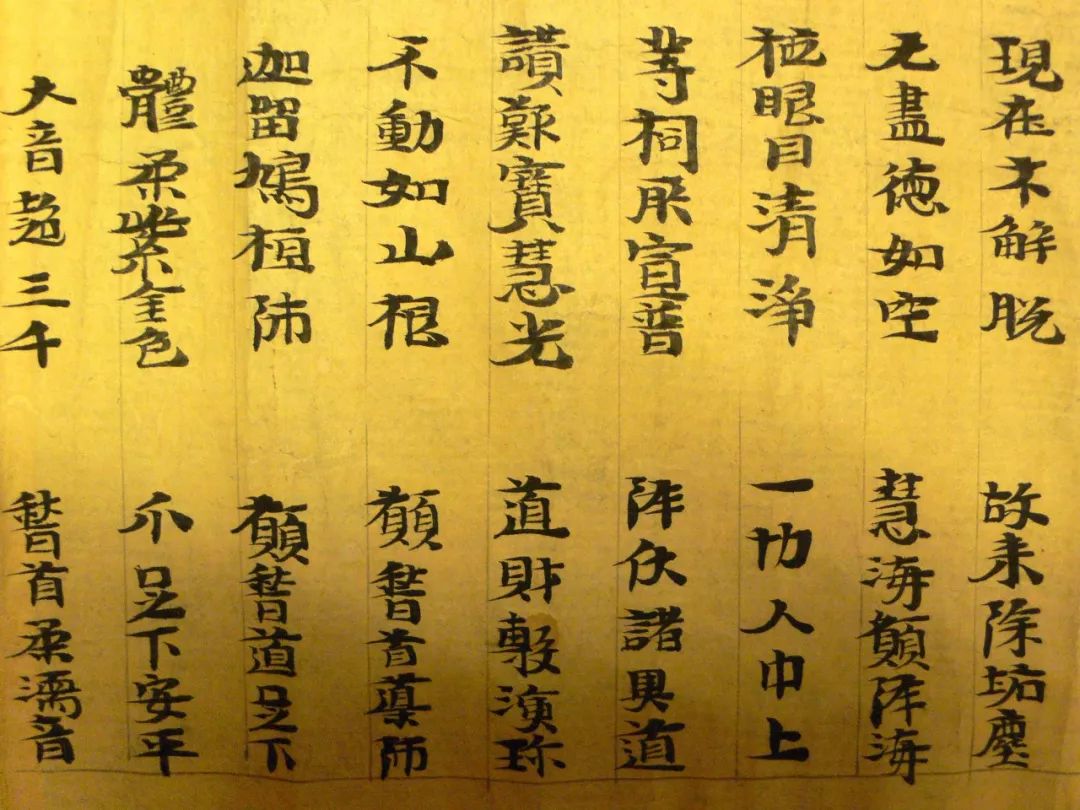 現在不解脱　故来除垢塵
无盡德如空　慧海願降海
眼目清淨　一切人中上
等祠宣普　降伏諸異道
讃歎寶慧光　道財敷演珎
不動如山根　願稽首藥師
迦留鳩桓師　願稽首道足下
體柔紫金色　尒足下安平
大音超三千　稽首柔濡音